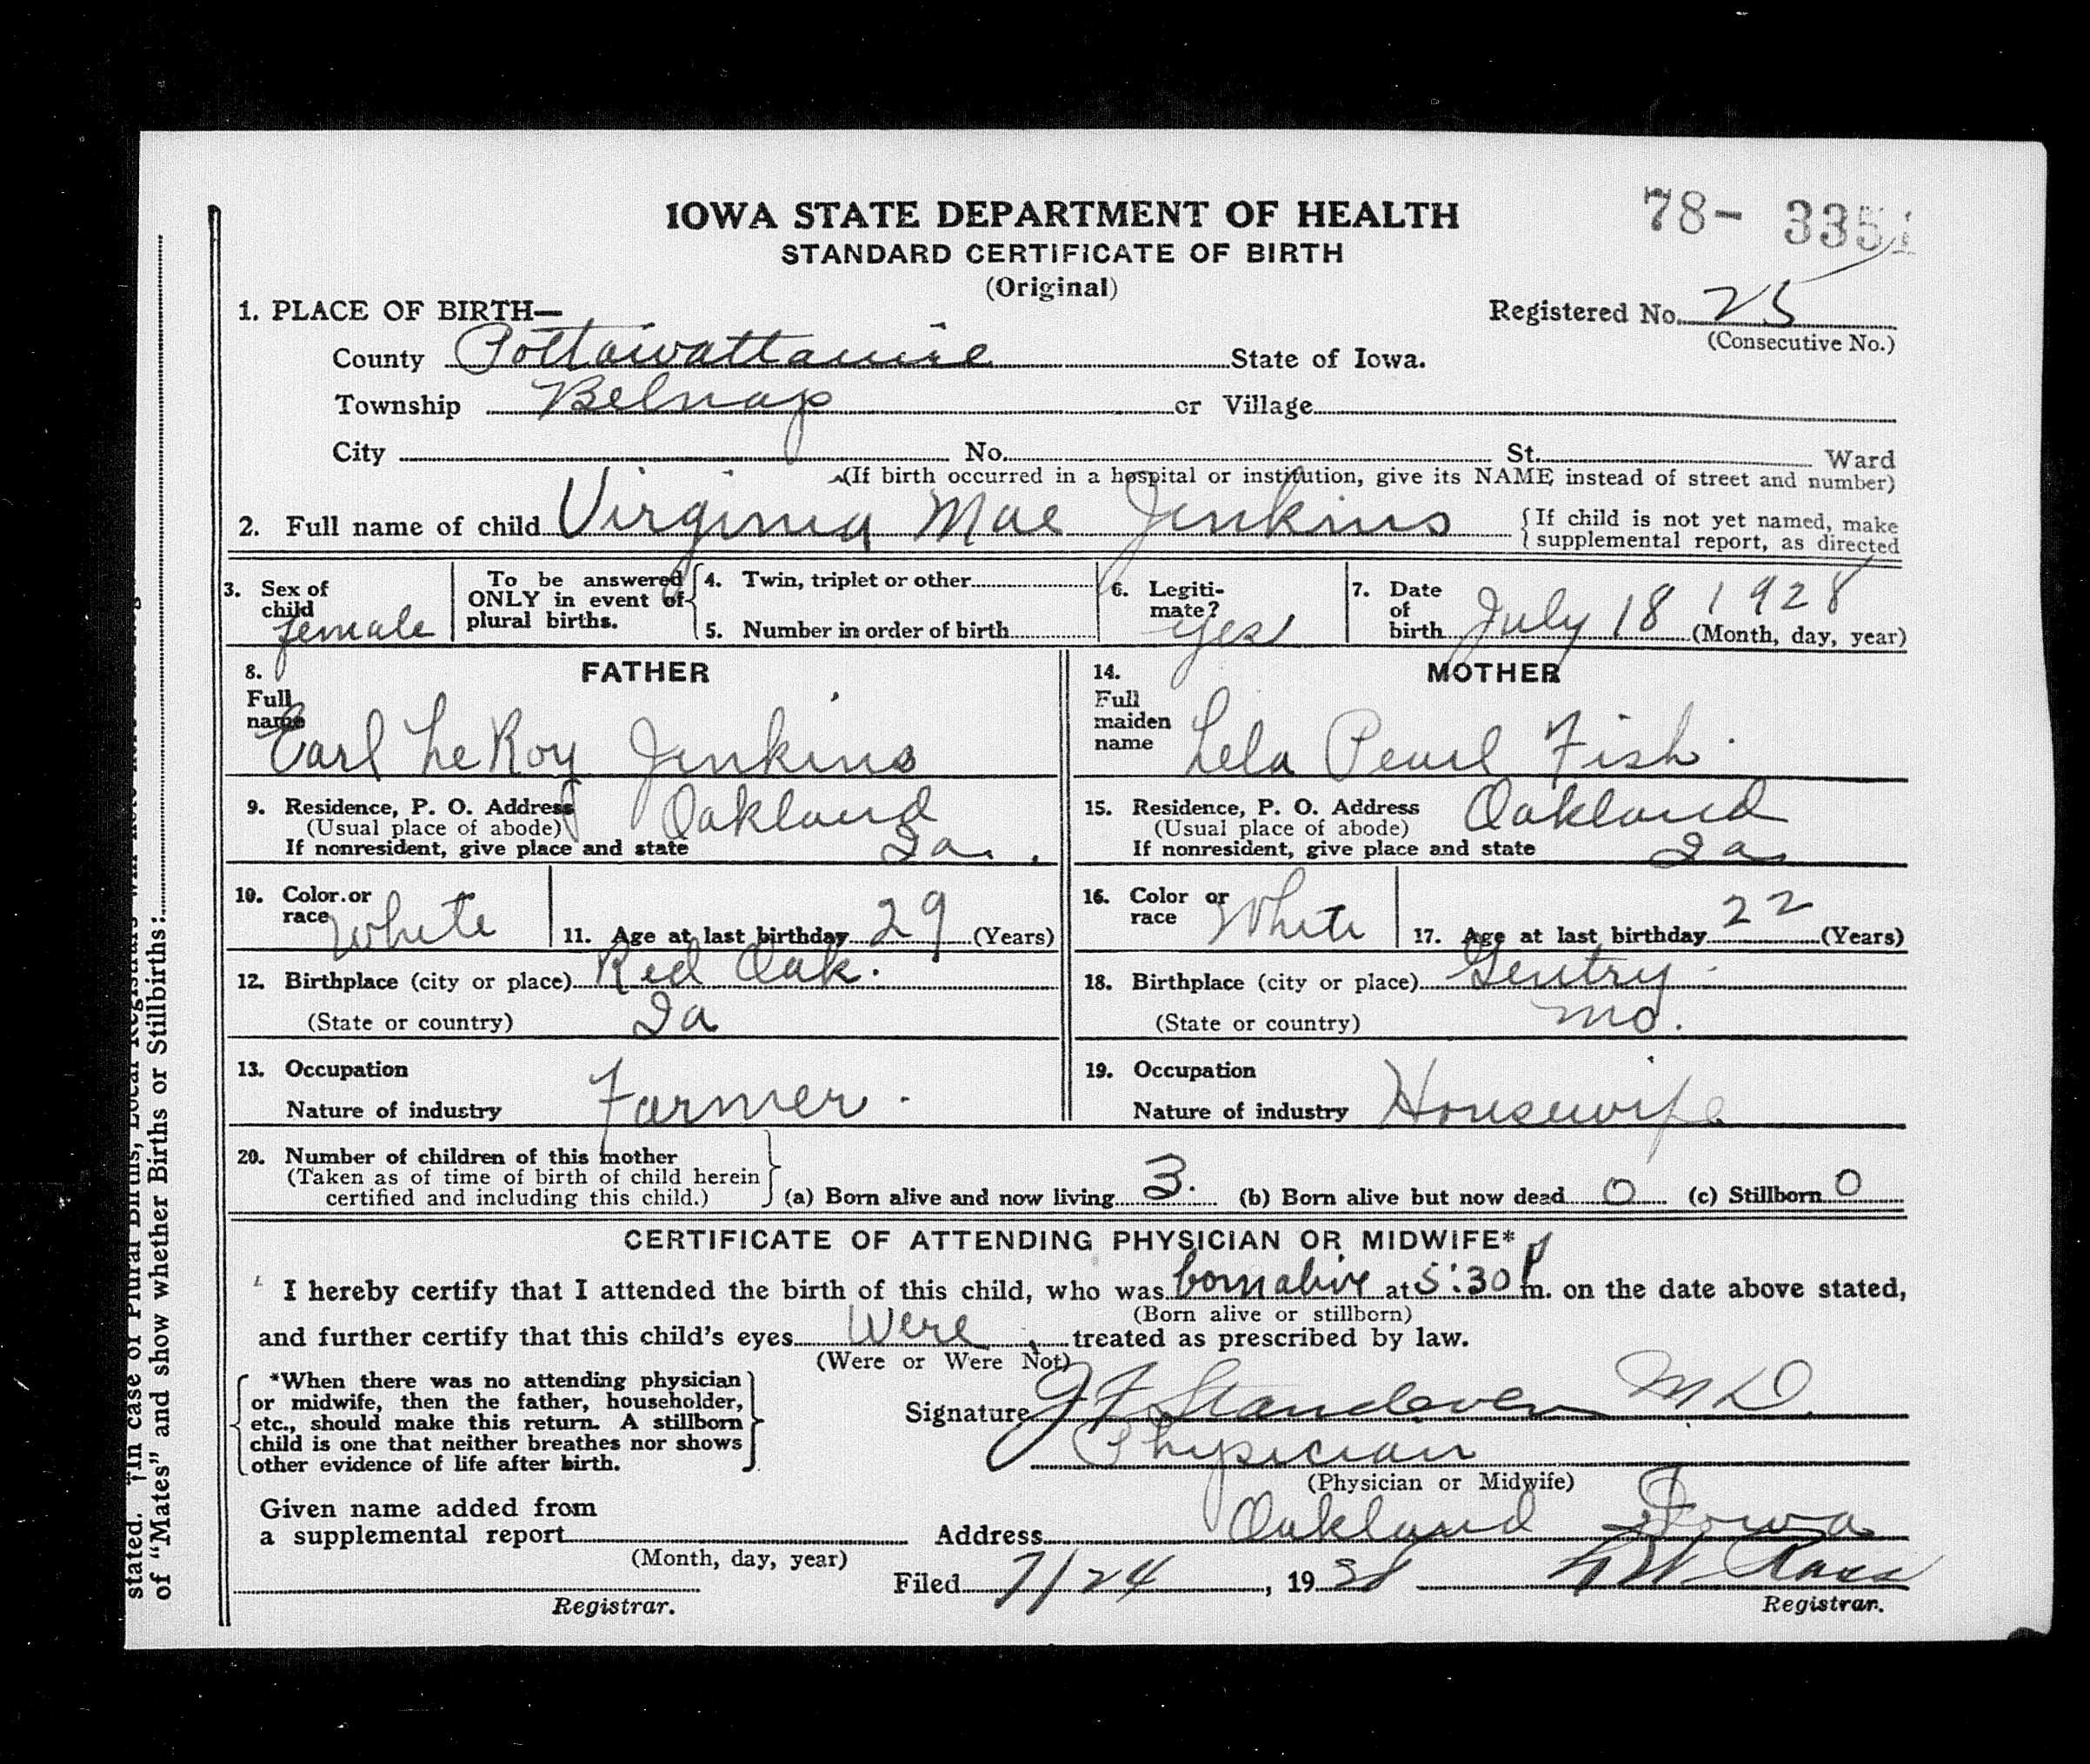 IOWA STATE DEPARTMENT OF HEALTH
78- 3351
STANDARD CERTIFICATE OF BIRTH
(Original)
1. PLACE OF BIRTH—
Registered No. 25
(Consecutive No.)
County Pottawattamie State of Iowa.
Township Belnap or Village
City No. St. Ward
(If birth occurred in a hospital or institution, give its NAME instead of street and number)
2. Full name of child Virginia Mae Jenkins {If child is not yet named, make supplemental report, as directed
3. Sex of child female
To be answered ONLY in event of plural births.
4. Twin, triplet or other
5. Number in order of birth
6. Legitimate? Yes
7. Date of birth July 18 1928 (Month, day, year)
8. FATHER
Full name Earl LeRoy Jenkins
9. Residence, P. O. Address Oakland
(Usual place of abode)
If nonresident, give place and state Ia.
10. Color or race White
11. Age at last birthday 29 (Years)
12. Birthplace (city or place) Red Oak.
(State or country) Ia
13. Occupation
Nature of industry Farmer.
14. MOTHER
Full maiden name Lela Pearl Fish.
15. Residence, P. O. Address Oakland
(Usual place of abode)
If nonresident, give place and state Ia
16. Color or race White
17. Age at last birthday 22 (Years)
18. Birthplace (city or place) Gentry
(State or country) Mo.
19. Occupation
Nature of industry Housewife
20. Number of children of this mother
(Taken as of time of birth of child herein
certified and including this child.)
(a) Born alive and now living 3. (b) Born alive but now dead 0 (c) Stillborn 0
CERTIFICATE OF ATTENDING PHYSICIAN OR MIDWIFE*
I hereby certify that I attended the birth of this child, who was born alive at 5:30 P m. on the date above stated,
(Born alive or stillborn)
and further certify that this child's eyes Were treated as prescribed by law.
(Were or Were Not)
*When there was no attending physician
or midwife, then the father, householder,
etc., should make this return. A stillborn
child is one that neither breathes nor shows
other evidence of life after birth.
Signature J F Standeven M D.
Physician
(Physician or Midwife)
Given name added from
a supplemental report
(Month, day, year)
Registrar.
Address Oakland Iowa
Filed 7/24, 19
Registrar.
stated. †In case of Plural Births, Local Registrars will
of "Mates" and show whether Births or Stillbirths: